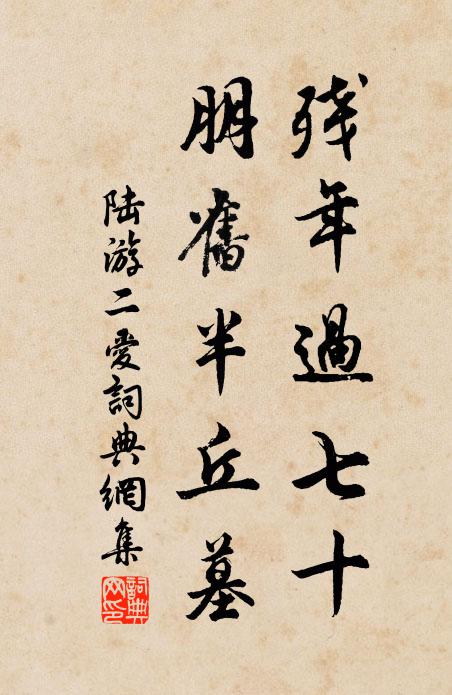 残年過七十
朋舊半丘墓
陆游二爱詞典網集
詞典网印